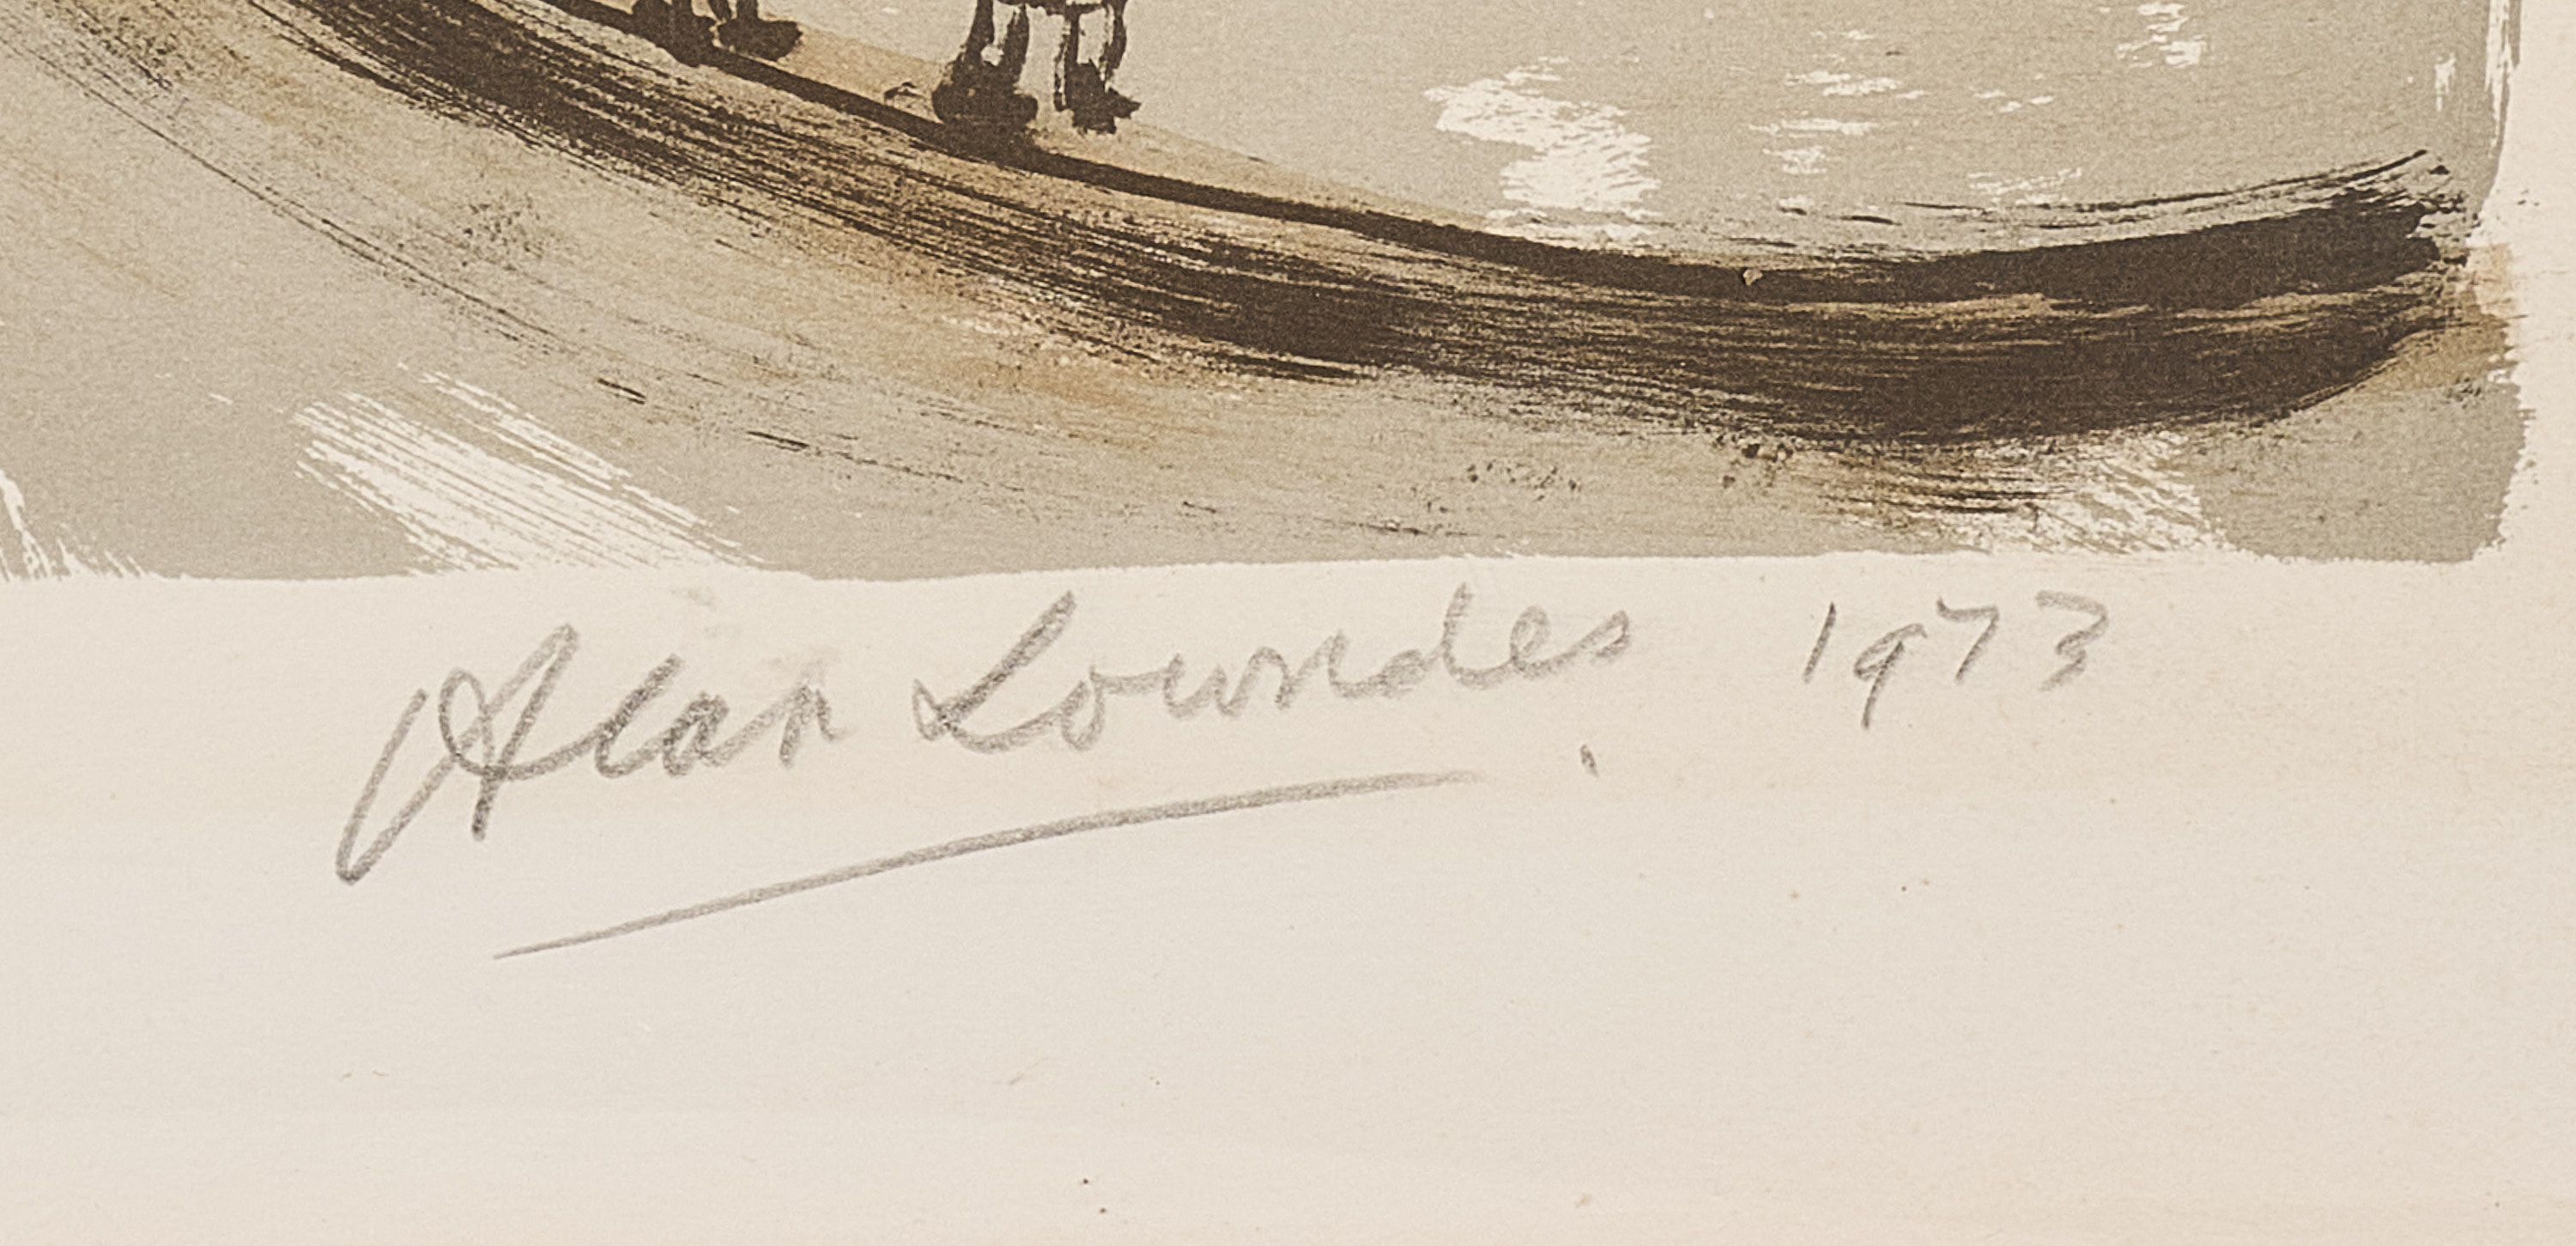 Alan Lowndes 1973